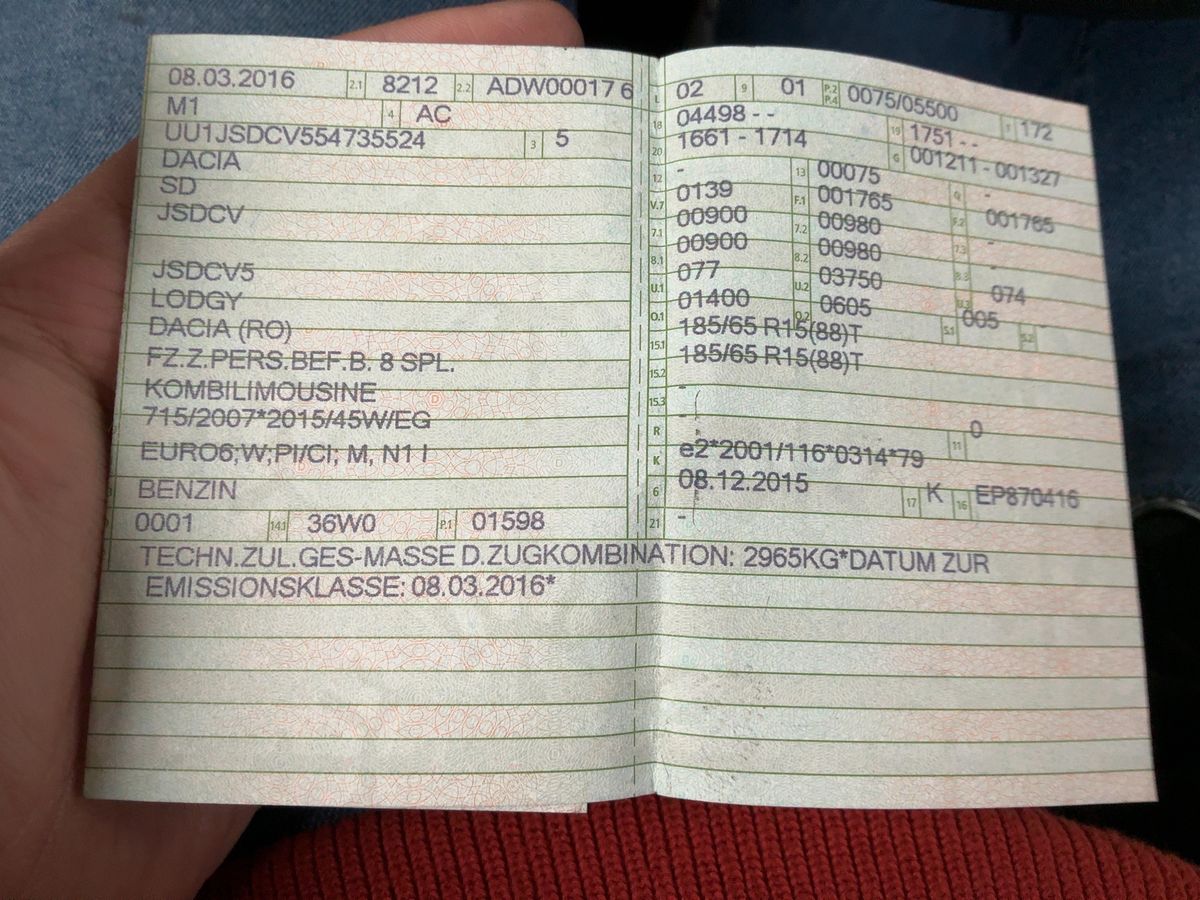 08.03.2016 2.1 8212 2.2 ADW00017 6
M1 4 AC
UU1JSDCV554735524 3 5
DACIA
SD
JSDCV
JSDCV5
LODGY
DACIA (RO)
FZ.Z.PERS.BEF.B. 8 SPL.
KOMBILIMOUSINE
715/2007*2015/45W/EG
EURO6;W;PI/CI; M, N1 I
BENZIN
0001 14.1 36W0 P.1 01598
L 02 9 01 P.2 P.4 0075/05500
18 04498 - - 19 1751 - - T 172
20 1661 - 1714 G 001211 - 001327
12 - 13 00075 Q -
V.7 0139 F.1 001765 F.2 001765
7.1 00900 7.2 00980 7.3 -
8.1 00900 8.2 00980 8.3 -
U.1 077 U.2 03750 U.3 074
O.1 01400 O.2 0605 S.1 005 S.2
15.1 185/65 R15(88)T
15.2 185/65 R15(88)T
15.3 -
R - 11 0
K e2*2001/116*0314*79
6 08.12.2015 17 K 16 EP870416
21 -
TECHN.ZUL.GES-MASSE D.ZUGKOMBINATION: 2965KG*DATUM ZUR
EMISSIONSKLASSE: 08.03.2016*